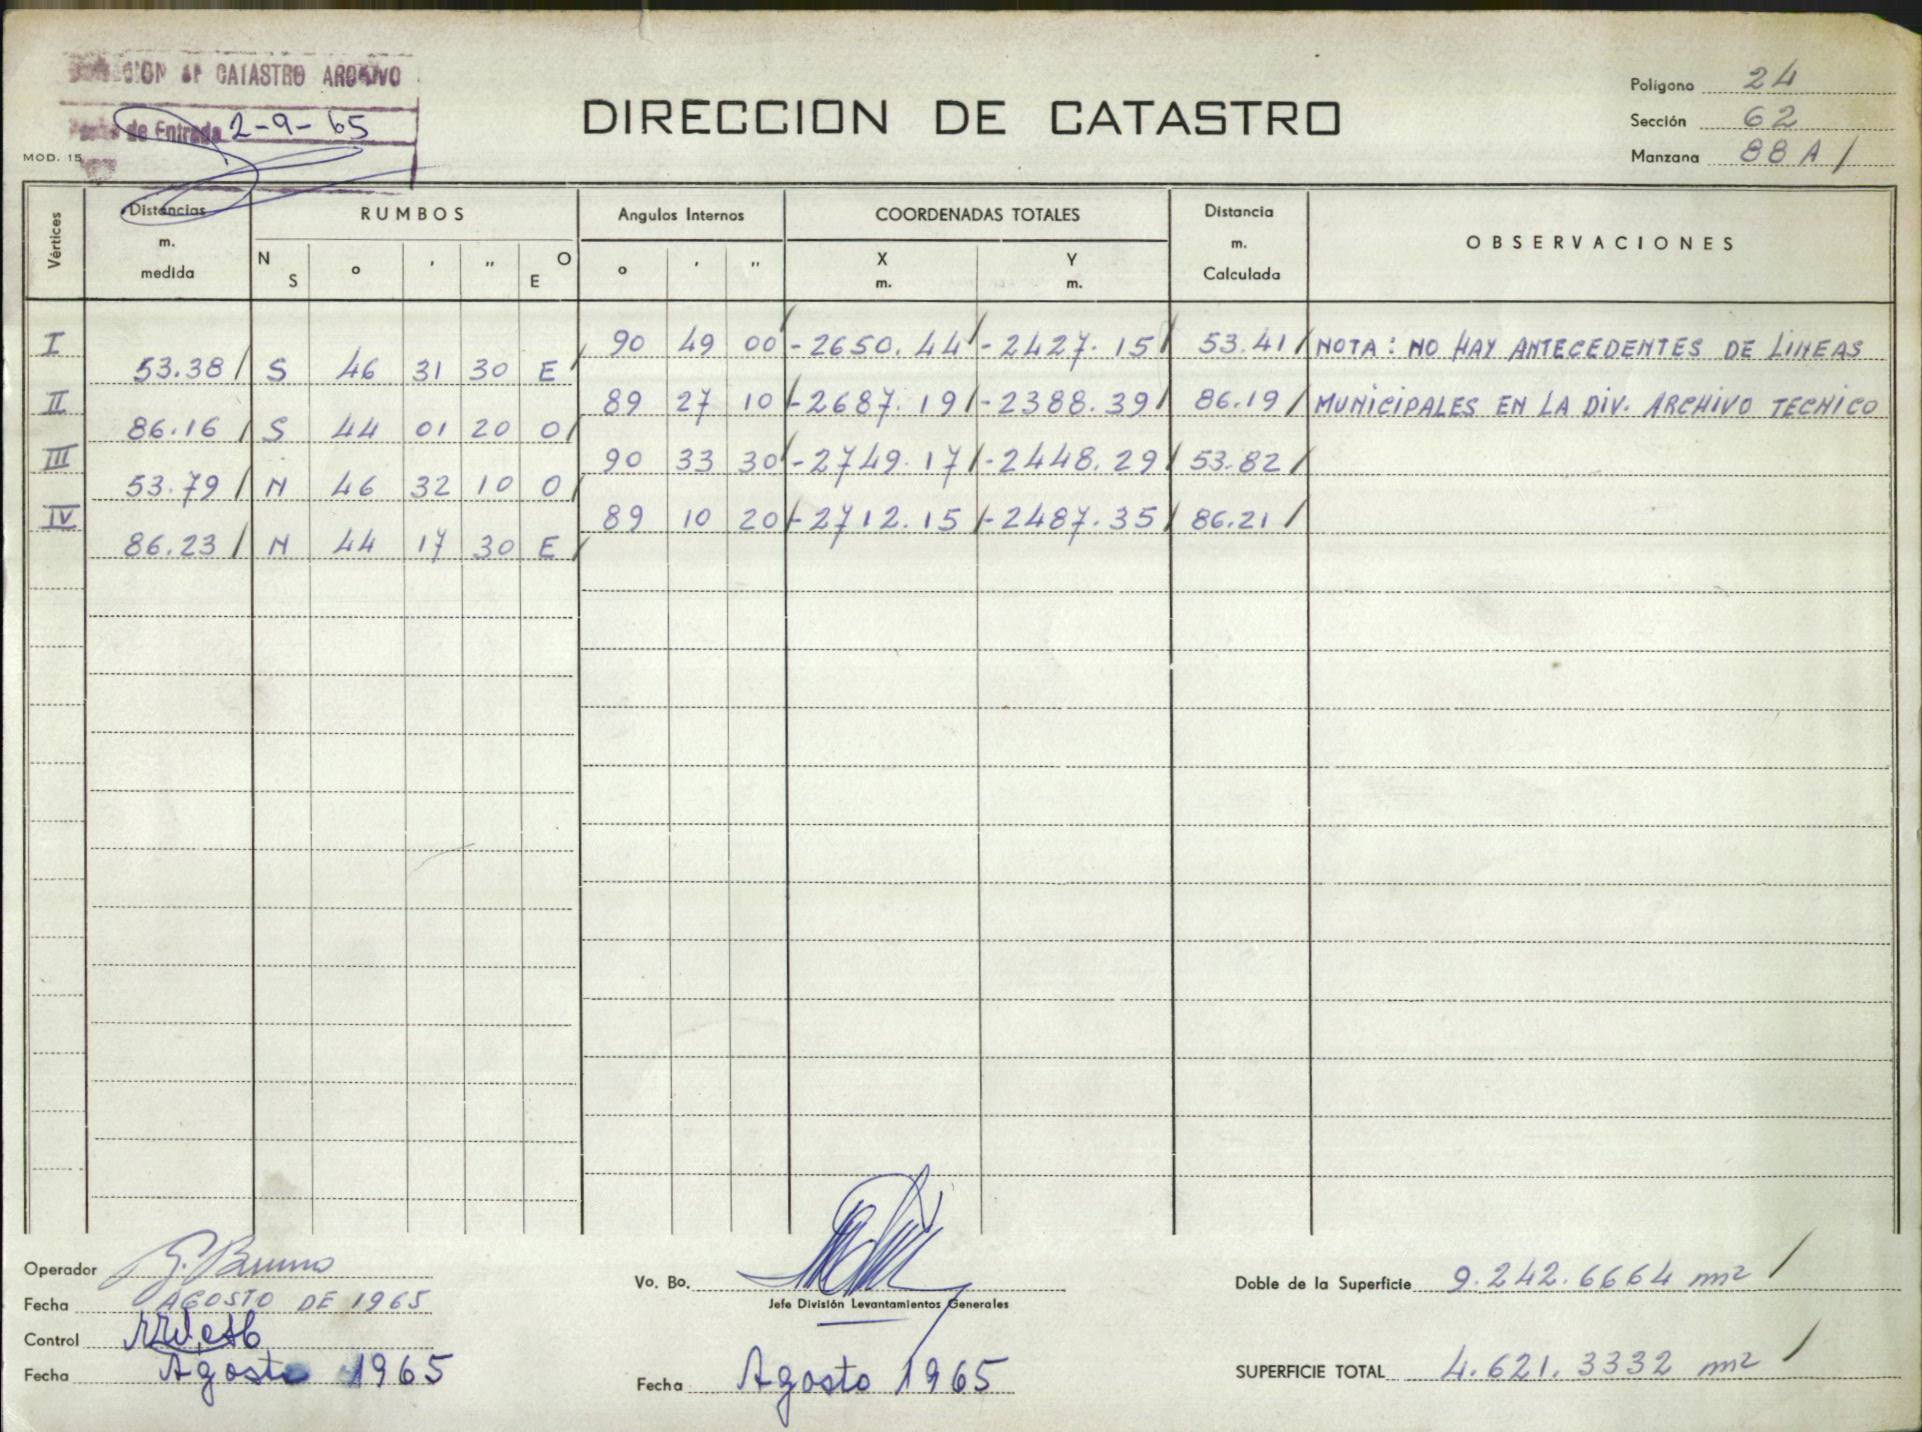 CATASTRO ARCHIVO
de Entrada 2-9-65
MOD. 15
DIRECCION DE CATASTRO
Polígono 24
Sección 62
Manzana 88 A /
Vértices
Distancias m. medida
RUMBOS
N S ° ' '' O E
Angulos Internos
° ' ''
COORDENADAS TOTALES
X m. Y m.
Distancia m. Calculada
OBSERVACIONES
I 90 49 00 -2650.44 -2427.15 53.41 NOTA: NO HAY ANTECEDENTES DE LINEAS
53.38 S 46 31 30 E
II 89 27 10 -2687.19 -2388.39 86.19 MUNICIPALES EN LA DIV. ARCHIVO TECNICO
86.16 S 44 01 20 O
III 90 33 30 -2749.17 -2448.29 53.82
53.79 N 46 32 10 O
IV 89 10 20 -2712.15 -2487.35 86.21
86.23 N 44 17 30 E
Operador G. Bruno
Fecha AGOSTO DE 1965
Control
Fecha Agosto 1965
Vo. Bo.
Jefe División Levantamientos Generales
Fecha Agosto 1965
Doble de la Superficie 9.242.6664 m²
SUPERFICIE TOTAL 4.621.3332 m²